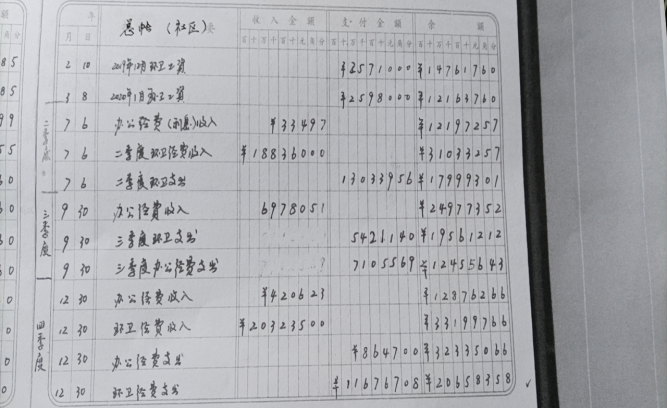 年
月 日
总帐 (社区)
收入金额 支付金额 余额
百十万千百十元角分 百十万千百十元角分 百十万千百十元角分
2 10 2019年12月环卫工资 ¥2571000 ¥14761760
3 8 2020年1月环卫工资 ¥2598000 ¥12163760
二季度
7 6 办公经费(利息)收入 ¥33497 ¥12197257
7 6 二季度环卫经费收入 ¥18836000 ¥31033257
7 6 二季度环卫支出 13033956 ¥17999301
三季度
9 30 办公经费收入 6978051 ¥24977352
9 30 三季度环卫支出 5426140 ¥19561212
9 30 三季度办公经费支出 7105569 ¥12455643
四季度
12 30 办公经费收入 ¥420623 ¥12876266
12 30 环卫经费收入 ¥20323500 ¥33199766
12 30 办公经费支出 ¥864700 ¥32335066
12 30 环卫经费支出 ¥11676708 ¥20658358